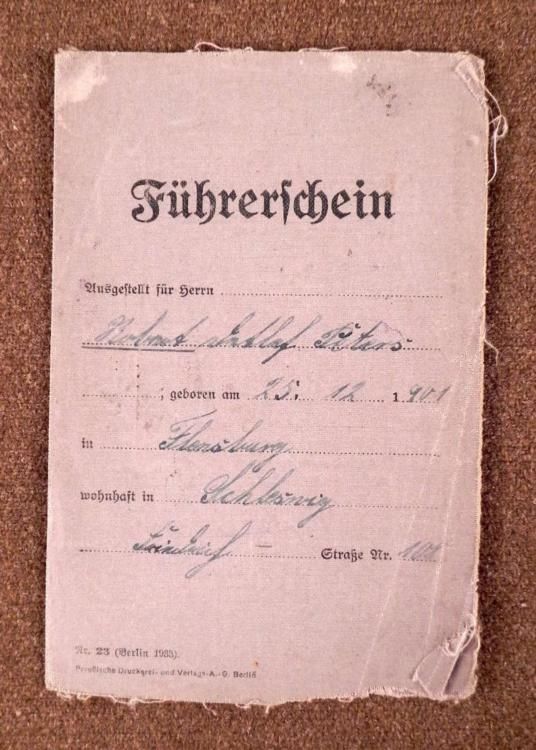 Führerschein
Ausgestellt für Herrn
Detlef Peters
, geboren am 25. 12 1901
in Flensburg
wohnhaft in Schleswig
Friedrich - Straße Nr.
Nr. 23 (Berlin 1933).
Preußische Druckerei- und Verlags-A.-G. Berlin